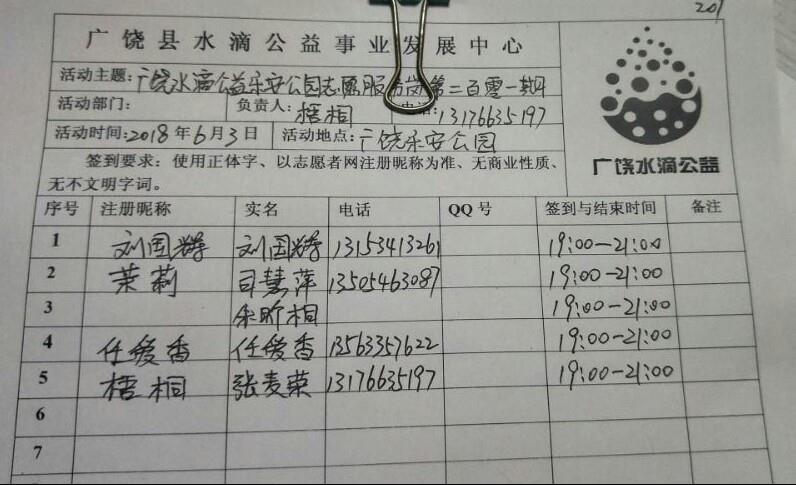 201
广饶县水滴公益事业发展中心
活动主题:广饶水滴公益乐安公园志愿服务岗第二百零一期
活动部门: 负责人:梧桐 电话:13176635197
活动时间:2018年6月3日 活动地点:广饶乐安公园
签到要求:使用正体字、以志愿者网注册昵称为准、无商业性质、
无不文明字词。
广饶水滴公益
序号 注册昵称 实名 电话 QQ号 签到与结束时间 备注
1 刘国辉 刘国辉 13153413261 19:00-21:00
2 茉莉 慧萍 13505463087 19:00-21:00
3 19:00-21:00
4 任爱香 任爱香 13563357622 19:00-21:00
5 梧桐 张麦荣 13176635197 19:00-21:00
6
7